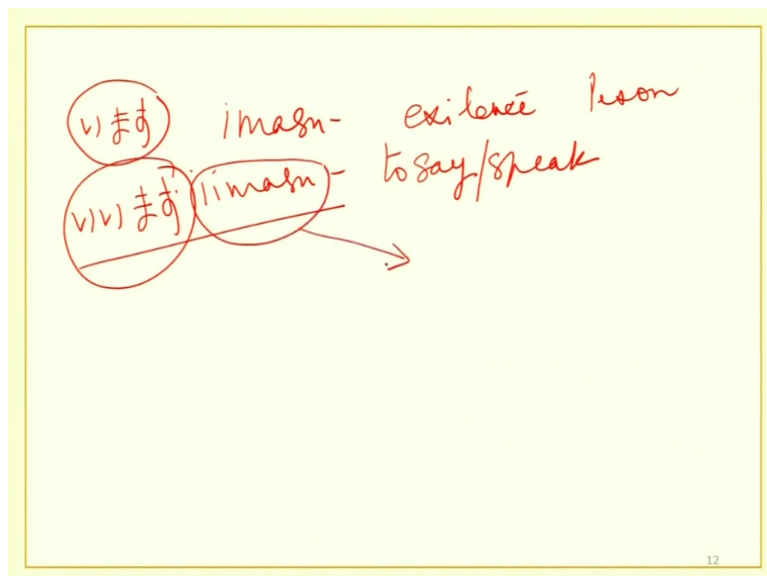 います imasu- exitence Person
いいます iimasu- to say/speak
12